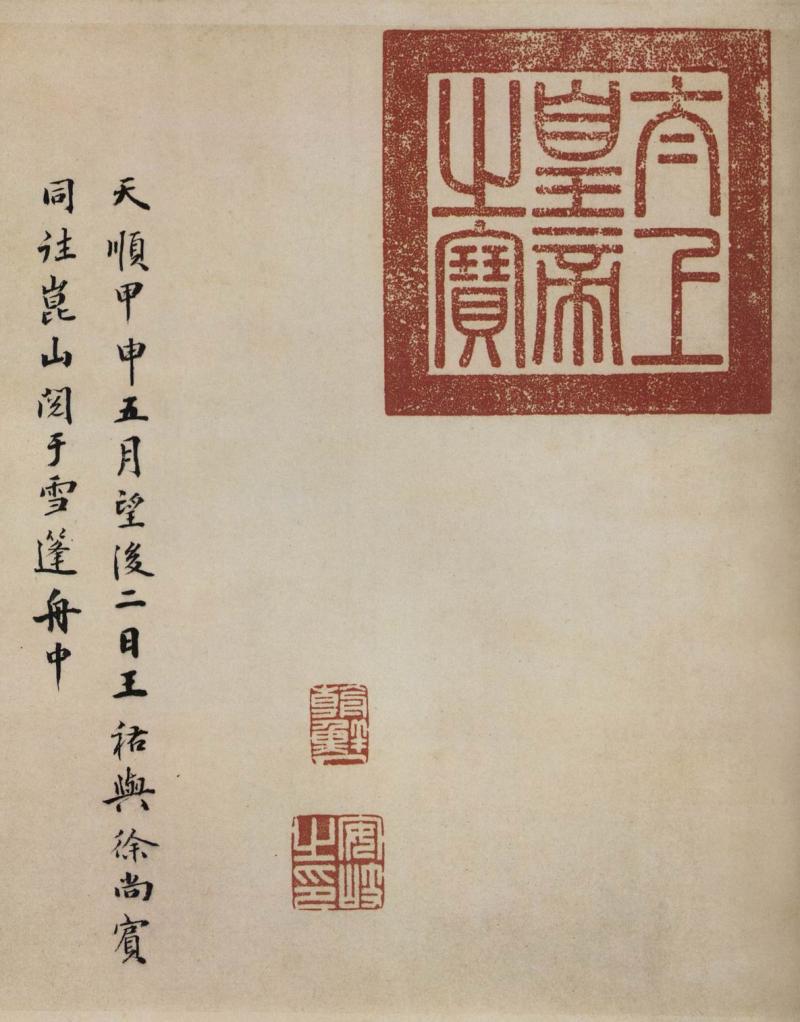 太上
皇帝
之寶
朝鮮人
安岐
之印
天順甲申五月望後二日王祐與徐尚賓
同往崑山閱于雪篷舟中